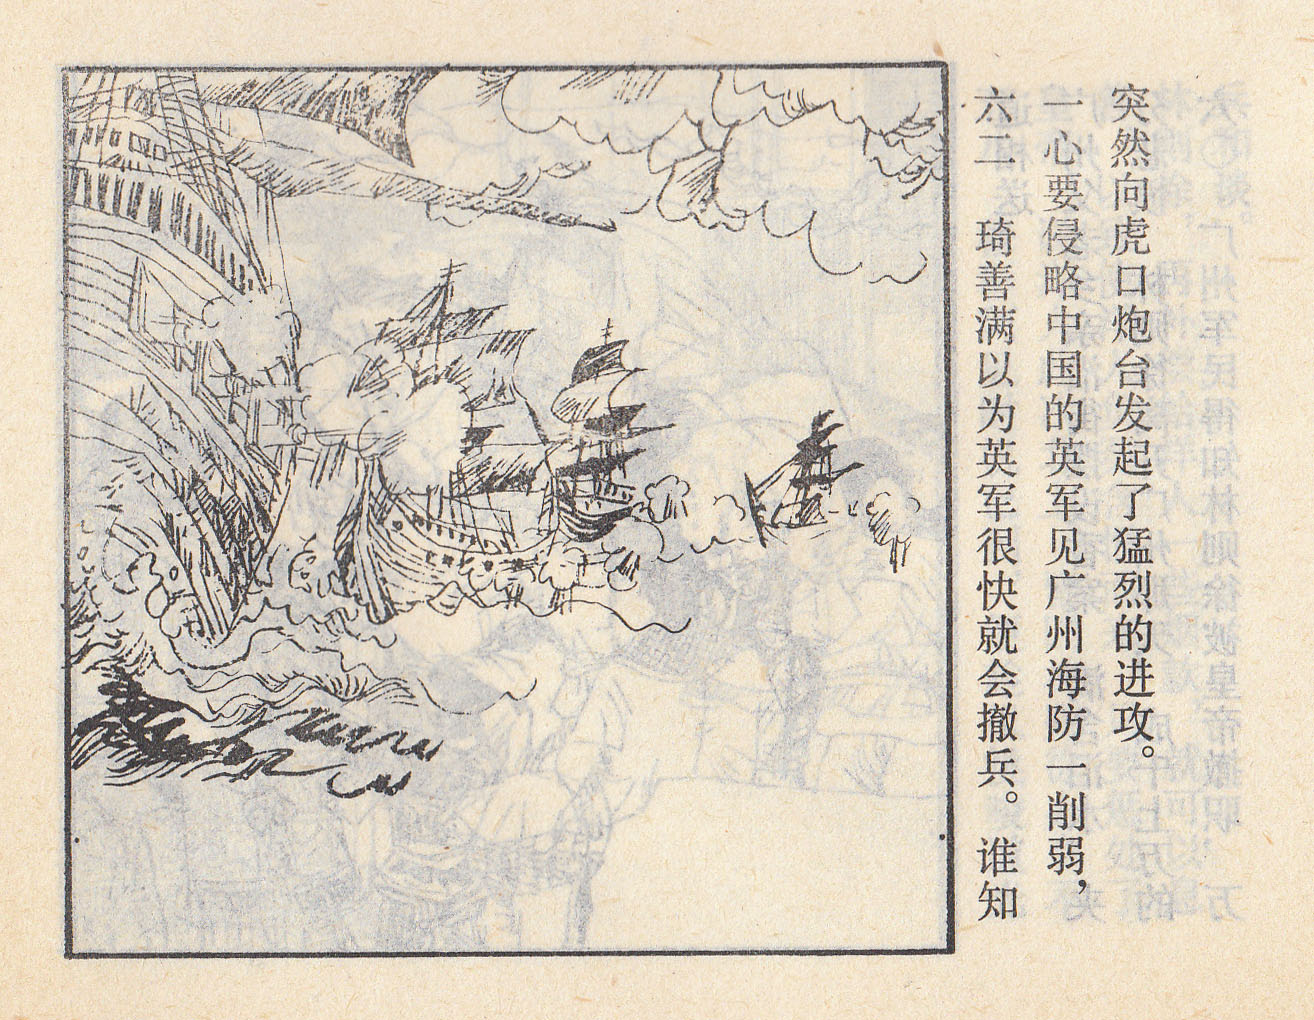 六二　琦善满以为英军很快就会撤兵。谁知
一心要侵略中国的英军见广州海防一削弱，
突然向虎口炮台发起了猛烈的进攻。